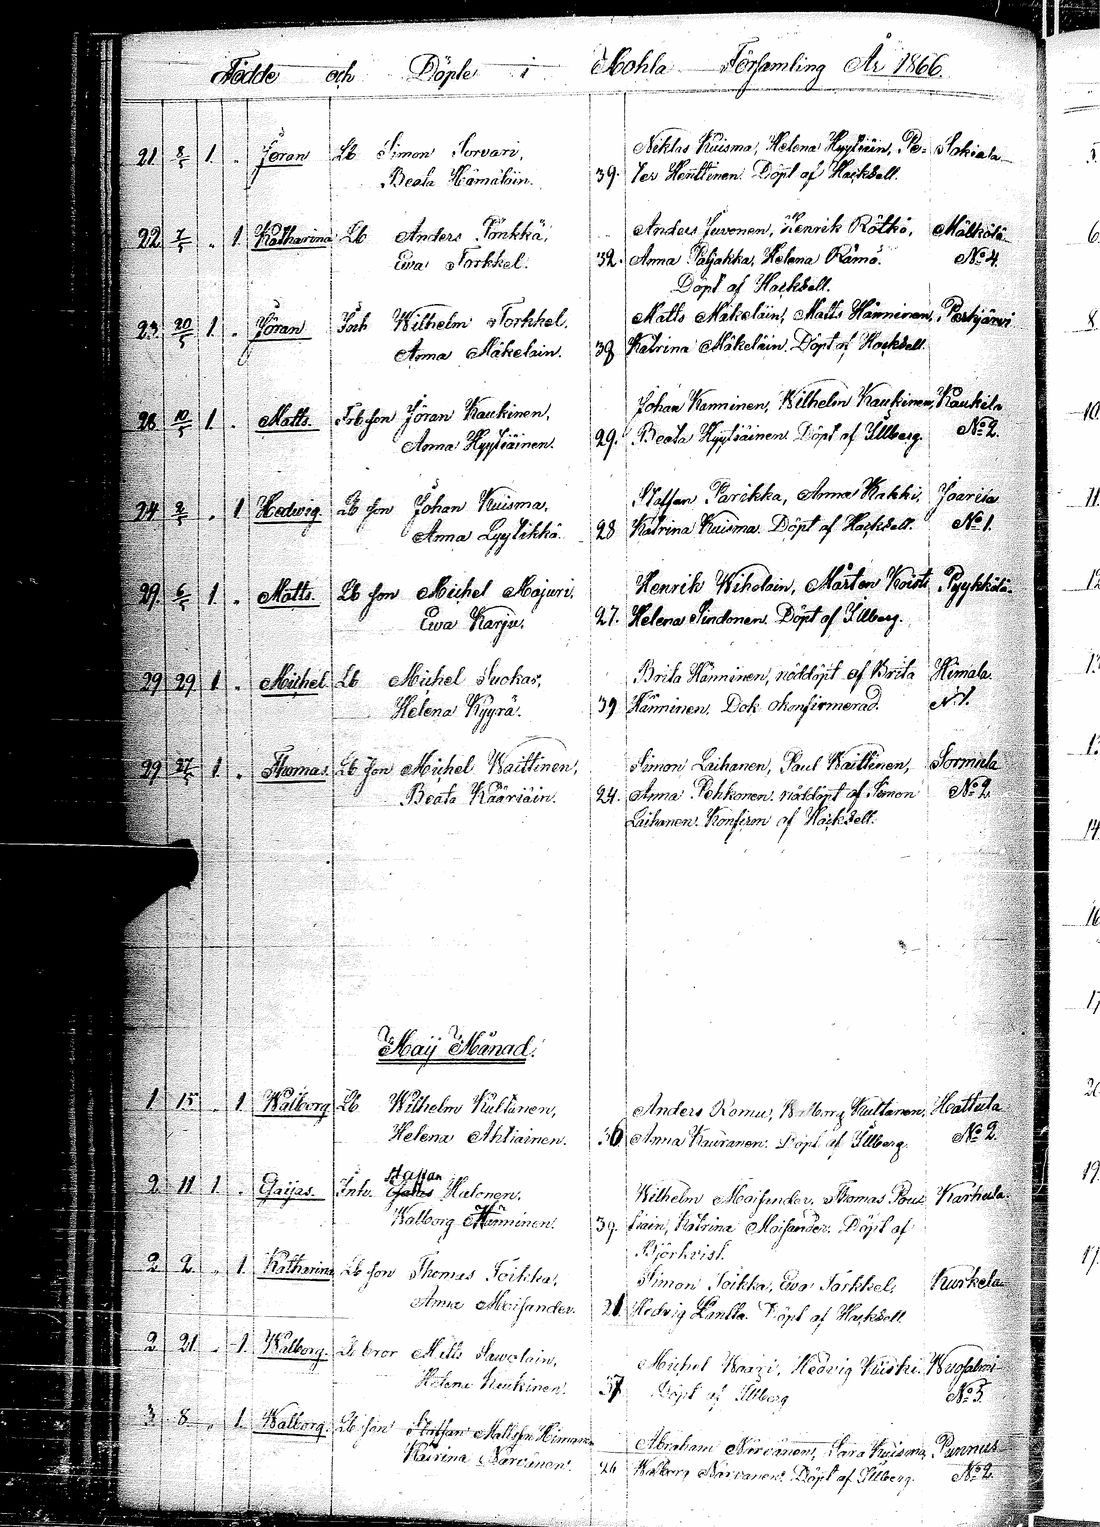 Födde och Döpte i Mohla Församling År 1866.
21. 8/5 1. „ Jöran Lb Simon Sorvari, Niklas Kuisma, Helena Hyytiäin, Pe- Sokiala
Beata Hämäläin. 39. ter Henttinen. Döpt af Hackzell.
22 7/5 „ 1. Katharina Lb Anders Pönkkä, Anders Juvonen, Henrik Rötkö, Mälkölä
Ewa Torkkel. 32. Anna Paljakka, Helena Rämö. No 4.
Döpt af Hackzell.
23. 20/5 1. „ Jöran Inh Wilhelm Torkkel. Matts Mäkeläin, Matts Hänninen, Perkjärvi
Anna Mäkeläin. 38 Katrina Mäkeläin. Döpt af Hackzell.
28 10/5 1. „ Matts. son Jöran Kaukinen, Johan Kanninen, Wilhelm Kaukinen, Kaukila
Anna Hyytiäinen. 29. Beata Hyytiäinen. Döpt af Illberg. No 2.
24 2/5 „ 1 Hedwig Lb son Johan Kuisma, Staffan Parikka, Anna Kakki, Jaarila
Anna Lyytikkä. 28 Katrina Kuisma. Döpt af Hackzell. No 1.
29. 6/5 1. „ Matts. Lb son Michel Majuri, Henrik Wiholain, Mårten Koisti, Pyykkölä.
Ewa Karju. 27. Helena Sindonen. Döpt af Illberg.
29 29 1. „ Michel Lb Michel Suckas, Brita Hänninen, nöddöpt af Brita Himala
Helena Kyyrä. 39 Hänninen. Dok okonfirmerad. N 1.
29 27/5 1. „ Thomas Lb son Michel Waittinen, Simon Laihanen, Paul Waittinen, Sormula
Beata Kääriäin. 24. Anna Pehkonen. nöddöpt af Simon No 2
Laihanen. Konfirm af Hackzell.
Maij Månad.
1 15 „ 1. Walborg Lb Wilhelm Kultanen, Anders Romu, Walborg Kultanen, Hattula
Helena Ahtiainen. 36 Anna Kauranen. Döpt af Illberg. No 2.
2 11 1. „ Staffan Halonen, Wilhelm Moisander, Thomas Pous Karhula.
Walborg Hänninen. 39. tiain, Katrina Moisander. Döpt af
Björkvist.
2 2 „ 1. Katharina Lb son Thomas Toikka, Simon Toikka, Ewa Torkkel, Kurkela
Anna Moisander. 21. Hedvig Lantta. Döpt af Hackzell
2 21 „ 1. Walborg. Lb bror Matts Sawolain, Michel Waari, Hedvig Kuiski. Wuosalmi
Helena Kuukinen. 37 Döpt af Illberg No 5.
3 8 „ 1. Walborg. Lb son Staffan Mattsson Himanen Abraham Närvänen, Sara Kuisma, Punnus
Katrina Närvänen. 26 Walborg Närvänen. Döpt af Illberg. No 2.